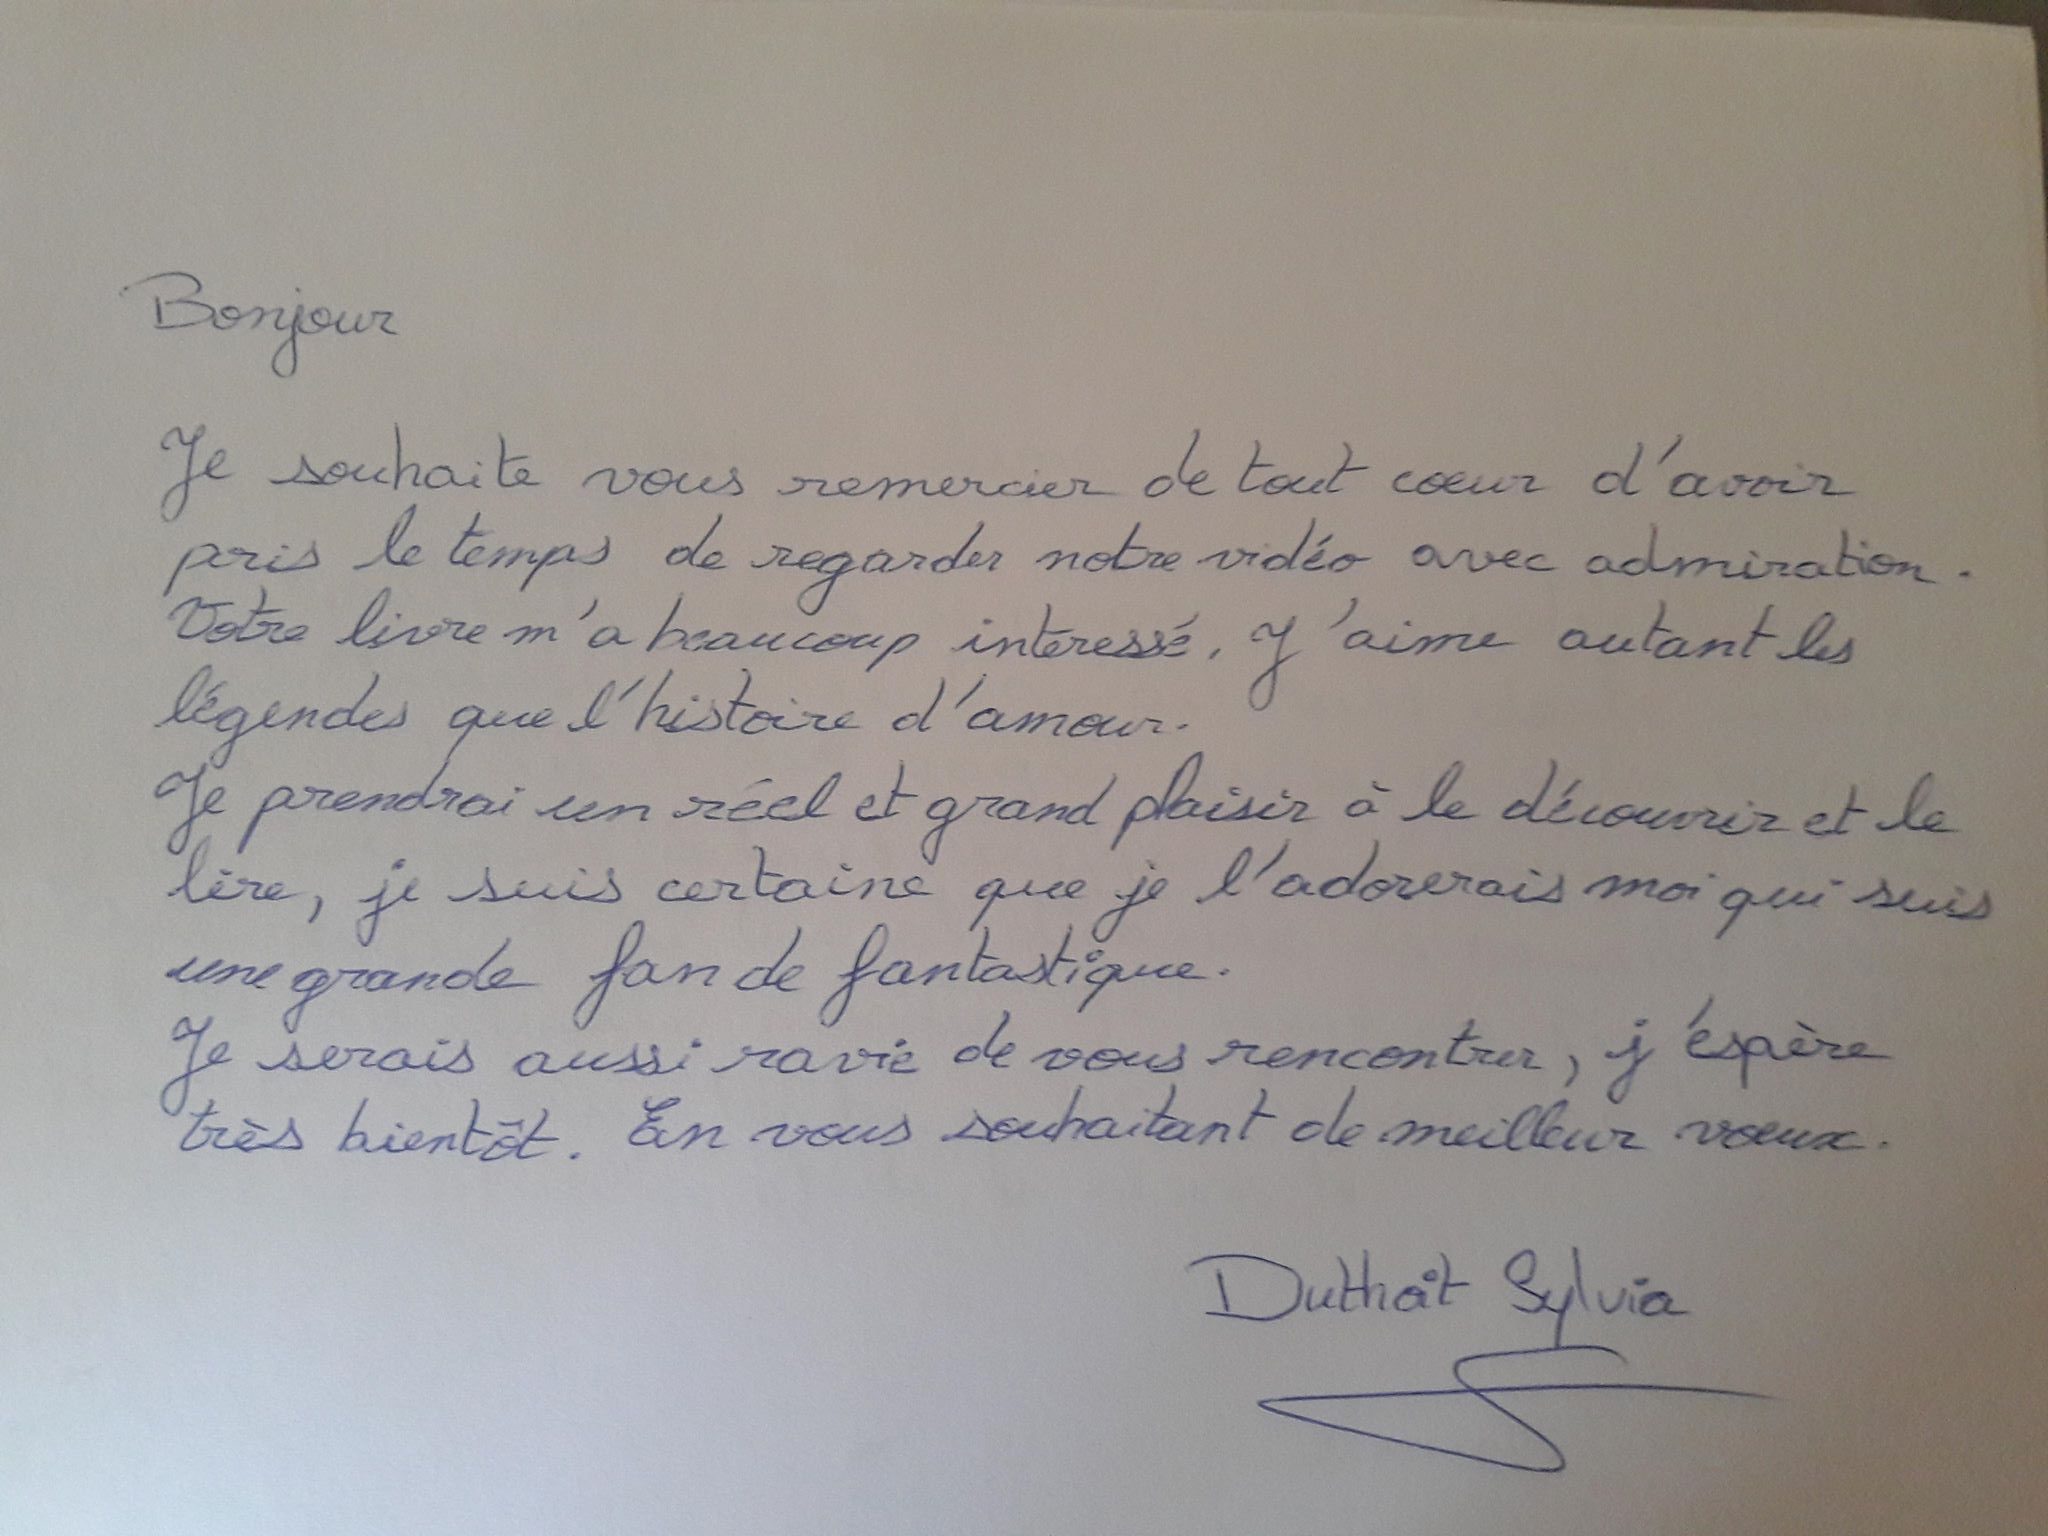 Bonjour
Je souhaite vous remercier de tout cœur d'avoir
pris le temps de regarder notre vidéo avec admiration.
Votre livre m'a beaucoup intéressé. J'aime autant les
légendes que l'histoire d'amour.
Je prendrai un réel et grand plaisir à le découvrir et le
lire, je suis certaine que je l'adorerais moi qui suis
une grande fan de fantastique.
Je serais aussi ravie de vous rencontrer, j'éspère
très bientôt. En vous souhaitant de meilleur vœux.
Duthoit Sylvia